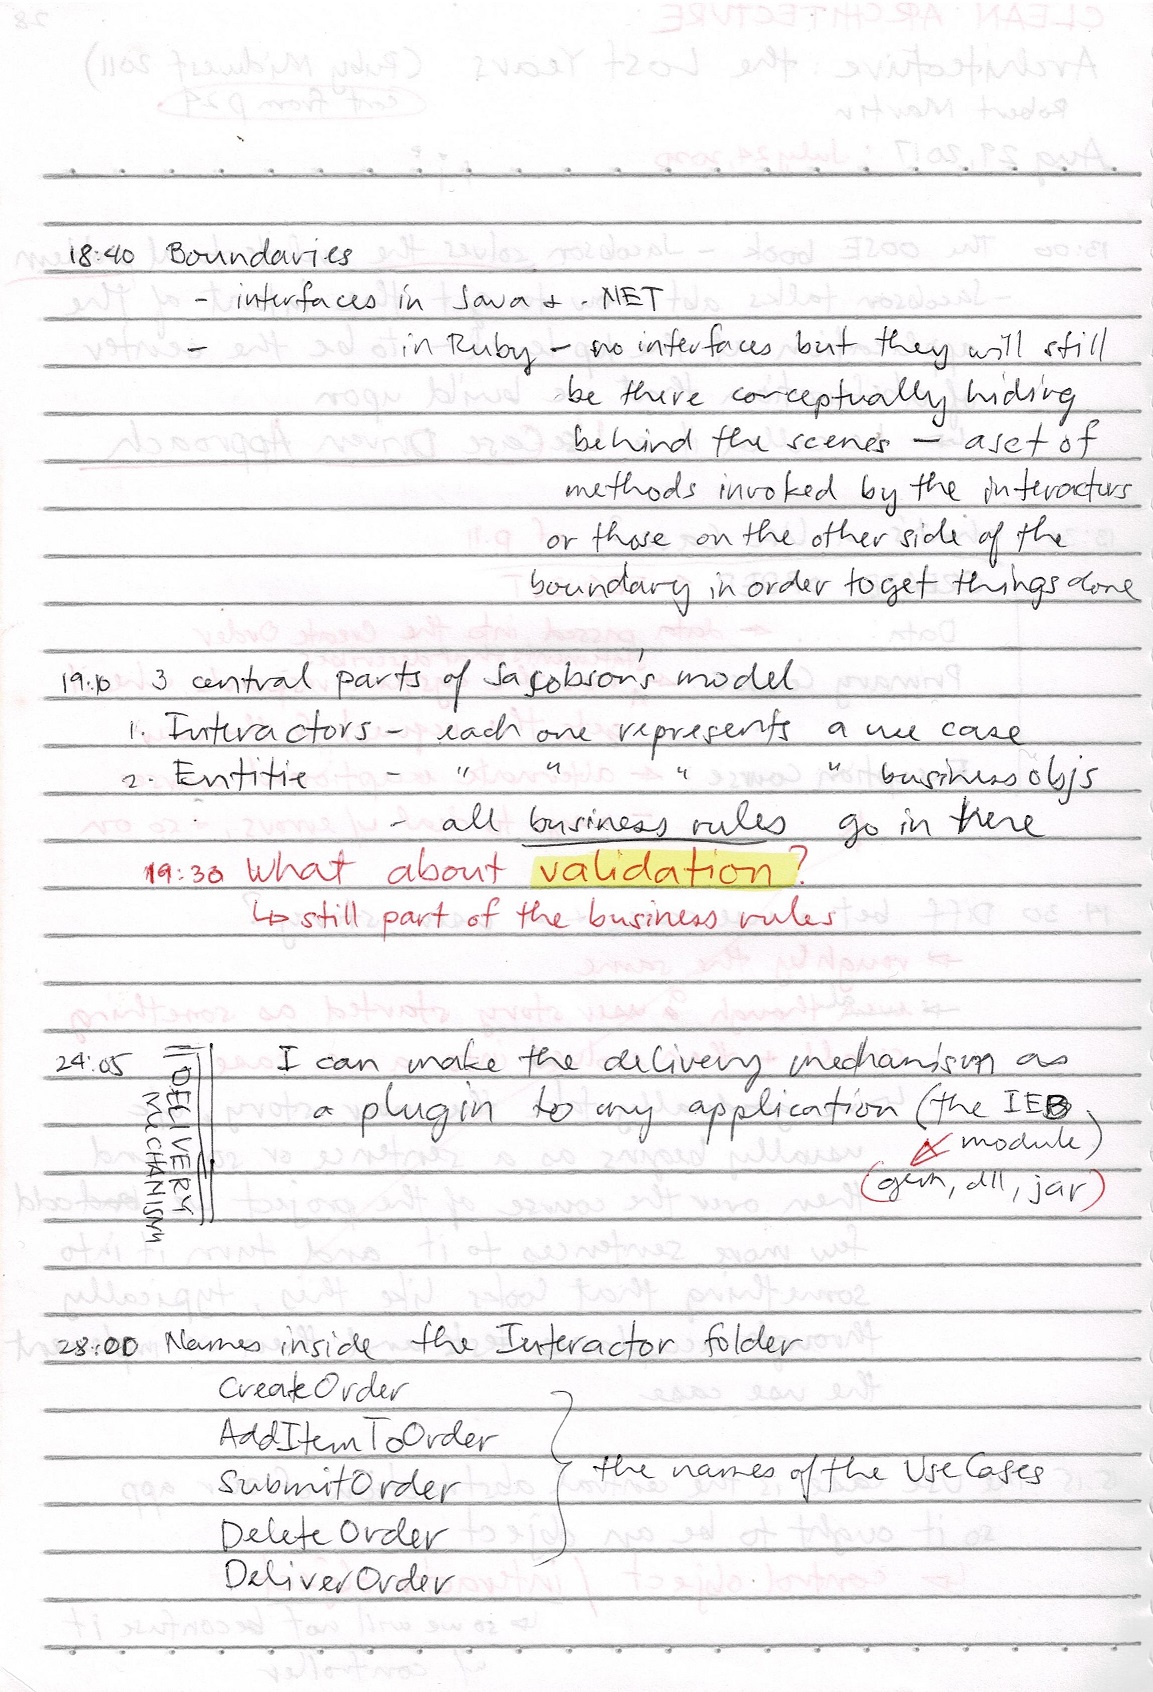 18:40 Boundaries
- interfaces in Java & .NET
- in Ruby - no interfaces but they will still
be there conceptually hiding
behind the scenes - a set of
methods invoked by the interactors
or those on the other side of the
boundary in order to get things done
19:10 3 central parts of Jacobson's model
1. Interactors - each one represents a use case
2. Entitie - " " " " business objs
- all business rules go in here
19:30 What about validation?
↳ still part of the business rules
24:05 I can make the delivery mechanism as
DELIVERY
MECHANISM
a plugin to any application (the IEB
module)
(gem, dll, jar)
28:00 Names inside the Interactor folder
CreateOrder
AddItemToOrder
SubmitOrder
the names of the Use Cases
DeleteOrder
DeliverOrder